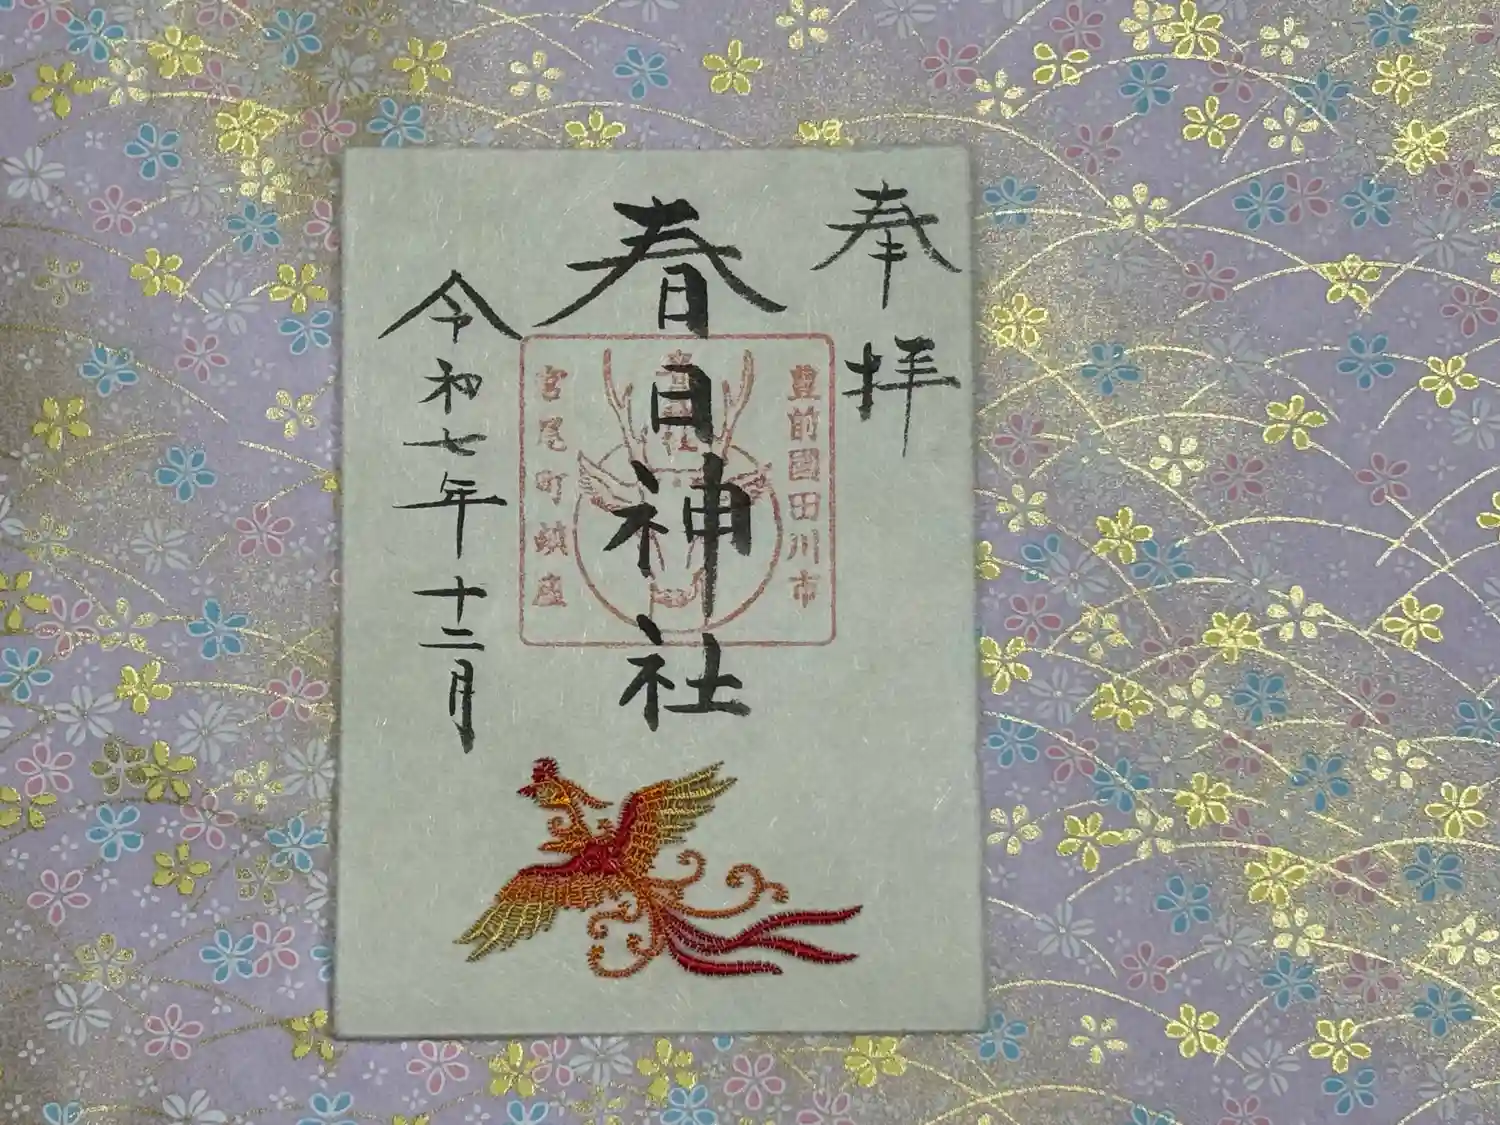 奉拝
春日神社
豊前國田川市
宮尾町鎮座
令和七年十二月